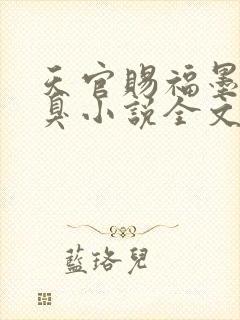 天官賜福墨
臭小說全文
藍珞兒